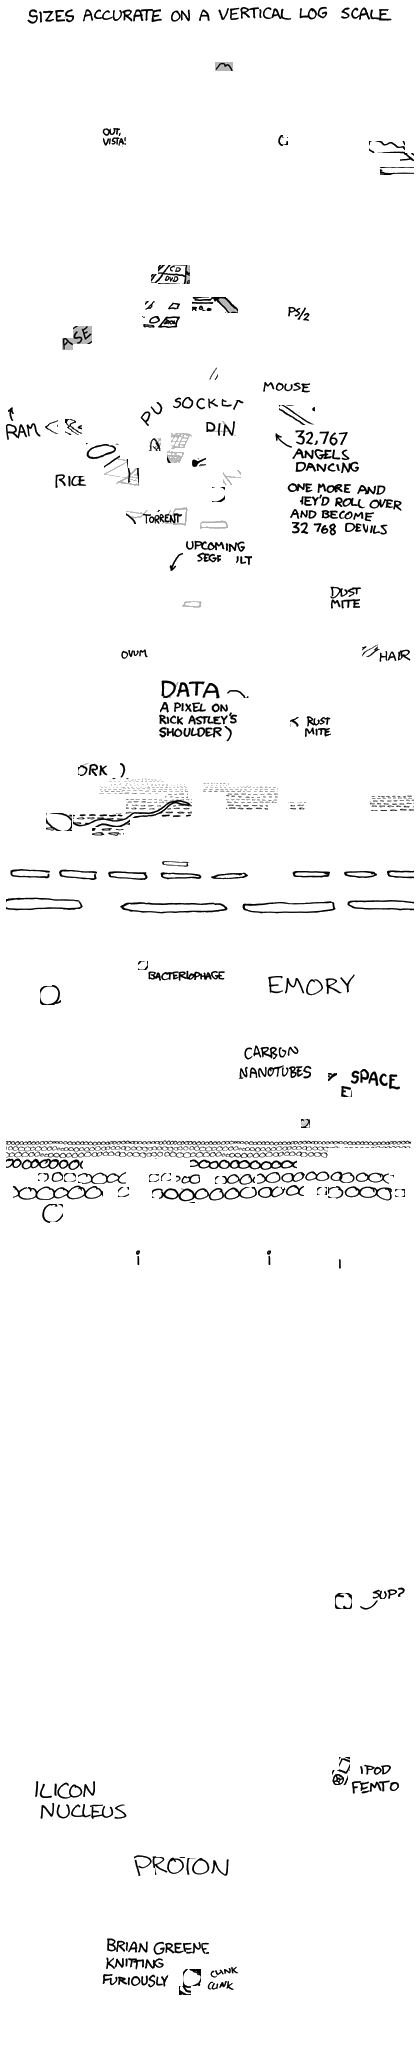 SIZES ACCURATE ON A VERTICAL LOG SCALE
OUT,
VISTA!
CD
DVD
PS/2
ASE
MOUSE
PU SOCKET
DIN
RAM
32,767
ANGELS
DANCING
RICE
ONE MORE AND
HEY'D ROLL OVER
AND BECOME
32 768 DEVILS
TORRENT
UPCOMING
SEGF ILT
DUST
MITE
OVUM
HAIR
DATA
A PIXEL ON
RICK ASTLEY'S
SHOULDER)
RUST
MITE
ORK )
BACTERIOPHAGE
EMORY
CARBON
NANOTUBES
SPACE
E
SUP?
IPOD
FEMTO
ILICON
NUCLEUS
PROTON
BRIAN GREENE
KNITTING
FURIOUSLY
CLINK
CLINK